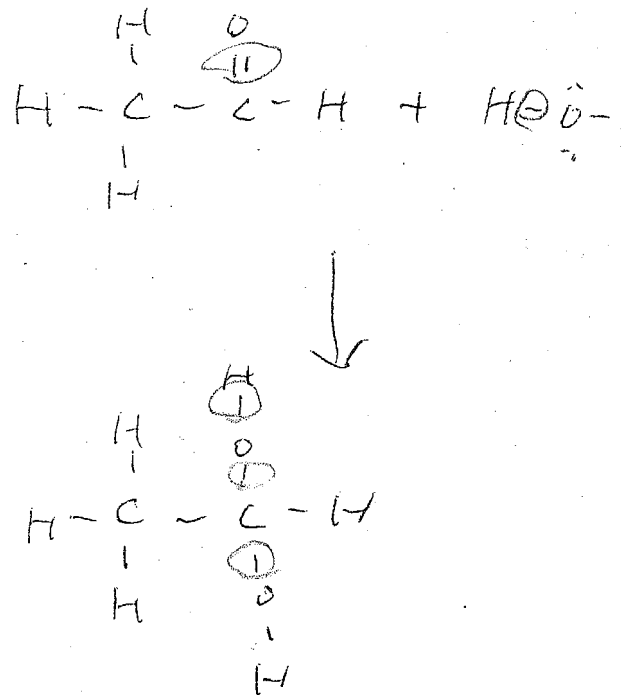 H O
H - C - C - H + H - O -
H
H
H O
H - C - C - H
H O
H